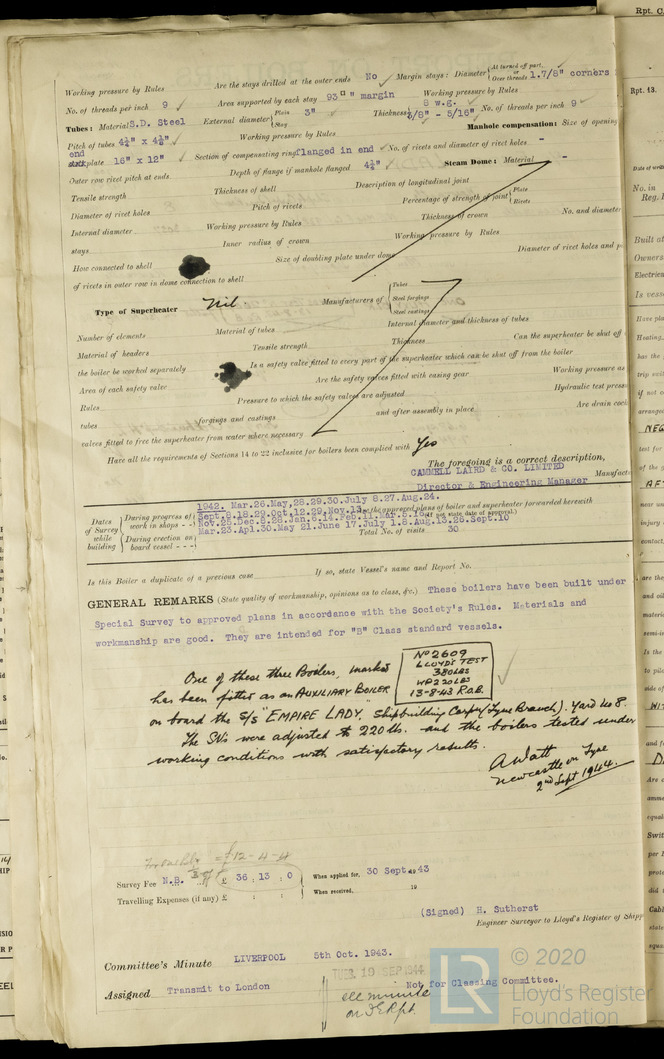 Rpt. C
Working pressure by Rules Are the stays drilled at the outer ends No Margin stays: Diameter { At turned off part, or Over threads 1.7/8" corners
No. of threads per inch 9 Area supported by each stay 93 □" margin Working pressure by Rules
Tubes: Material S.D. Steel External diameter { Plain Stay 3" Thickness { 8 w.g. 4/8" - 5/16" No. of threads per inch 9
Pitch of tubes 4¼" x 4¼" Working pressure by Rules Manhole compensation: Size of opening
end plate 16" x 12" Section of compensating ring flanged in end No. of rivets and diameter of rivet holes -
Outer row rivet pitch at ends Depth of flange if manhole flanged 4¼" Steam Dome: Material -
Tensile strength Thickness of shell Description of longitudinal joint
Diameter of rivet holes Pitch of rivets Percentage of strength of joint { Plate Rivets
Internal diameter Working pressure by Rules Thickness of crown No. and diameter
stays Inner radius of crown Working pressure by Rules
How connected to shell Size of doubling plate under dome Diameter of rivet holes and p
of rivets in outer row in dome connection to shell
Type of Superheater Nil. Manufacturers of { Tubes Steel forgings Steel castings
Number of elements Material of tubes Internal diameter and thickness of tubes
Material of headers Tensile strength Thickness Can the superheater be shut off
the boiler be worked separately Is a safety valve fitted to every part of the superheater which can be shut off from the boiler
Area of each safety valve Are the safety valves fitted with easing gear Working pressure as
Rules Pressure to which the safety valves are adjusted Hydraulic test press
tubes forgings and castings and after assembly in place Are drain cock
valves fitted to free the superheater from water where necessary
Have all the requirements of Sections 14 to 22 inclusive for boilers been complied with Yes
The foregoing is a correct description,
CAMMELL LAIRD & CO. LIMITED Manufact
Director & Engineering Manager
1942. Mar.26.May,28.29.30.July 8.27.Aug.24.
Dates of Survey while building { During progress of work in shops - - Sept.8.18.29.Oct.12.29.Nov.13. the approved plans of boiler and superheater forwarded herewith
Nov.25.Dec.8.28.Jan.6.14.Feb.11.Mar.8.18. (If not state date of approval.)
During erection on board vessel - - - Mar.23.Apl.30.May 21.June 17.July 1.8.Aug.13.26.Sept.10
Total No. of visits 30
Is this Boiler a duplicate of a previous case If so, state Vessel's name and Report No.
GENERAL REMARKS (State quality of workmanship, opinions as to class, &c.) These boilers have been built under
Special Survey to approved plans in accordance with the Society's Rules. Materials and
workmanship are good. They are intended for "B" Class standard vessels.
One of these three Boilers, marked
No 2609
LLOYD'S TEST
380 LBS
WP 220 LBS
13-8-43 R.O.B.
has been fitted as an AUXILIARY BOILER
on board the S/S "EMPIRE LADY," Shipbuilding Corpn (Tyne Branch). Yard No 8.
The SVs were adjusted to 220 lbs. and the boilers tested under
working conditions with satisfactory results.
A Watt
Newcastle on Tyne
2nd Sept 1944.
= £12-4-4
Survey Fee N.B. £ 36 : 13 : 0 When applied for, 30 Sept. 19 43
Travelling Expenses (if any) £ : : When received, 19
(Signed) H. Sutherst
Engineer Surveyor to Lloyd's Register of Shipp
Committee's Minute LIVERPOOL 5th Oct. 1943.
TUES. 19 SEP 1944
Assigned Transmit to London Not for Classing Committee.
see minute
on F.E. Rpt.
LR
© 2020
Lloyd's Register
Foundation
Rpt. 13.
Date of writ
No. in
Reg.
Built at
Owners
Electric
Is vesse